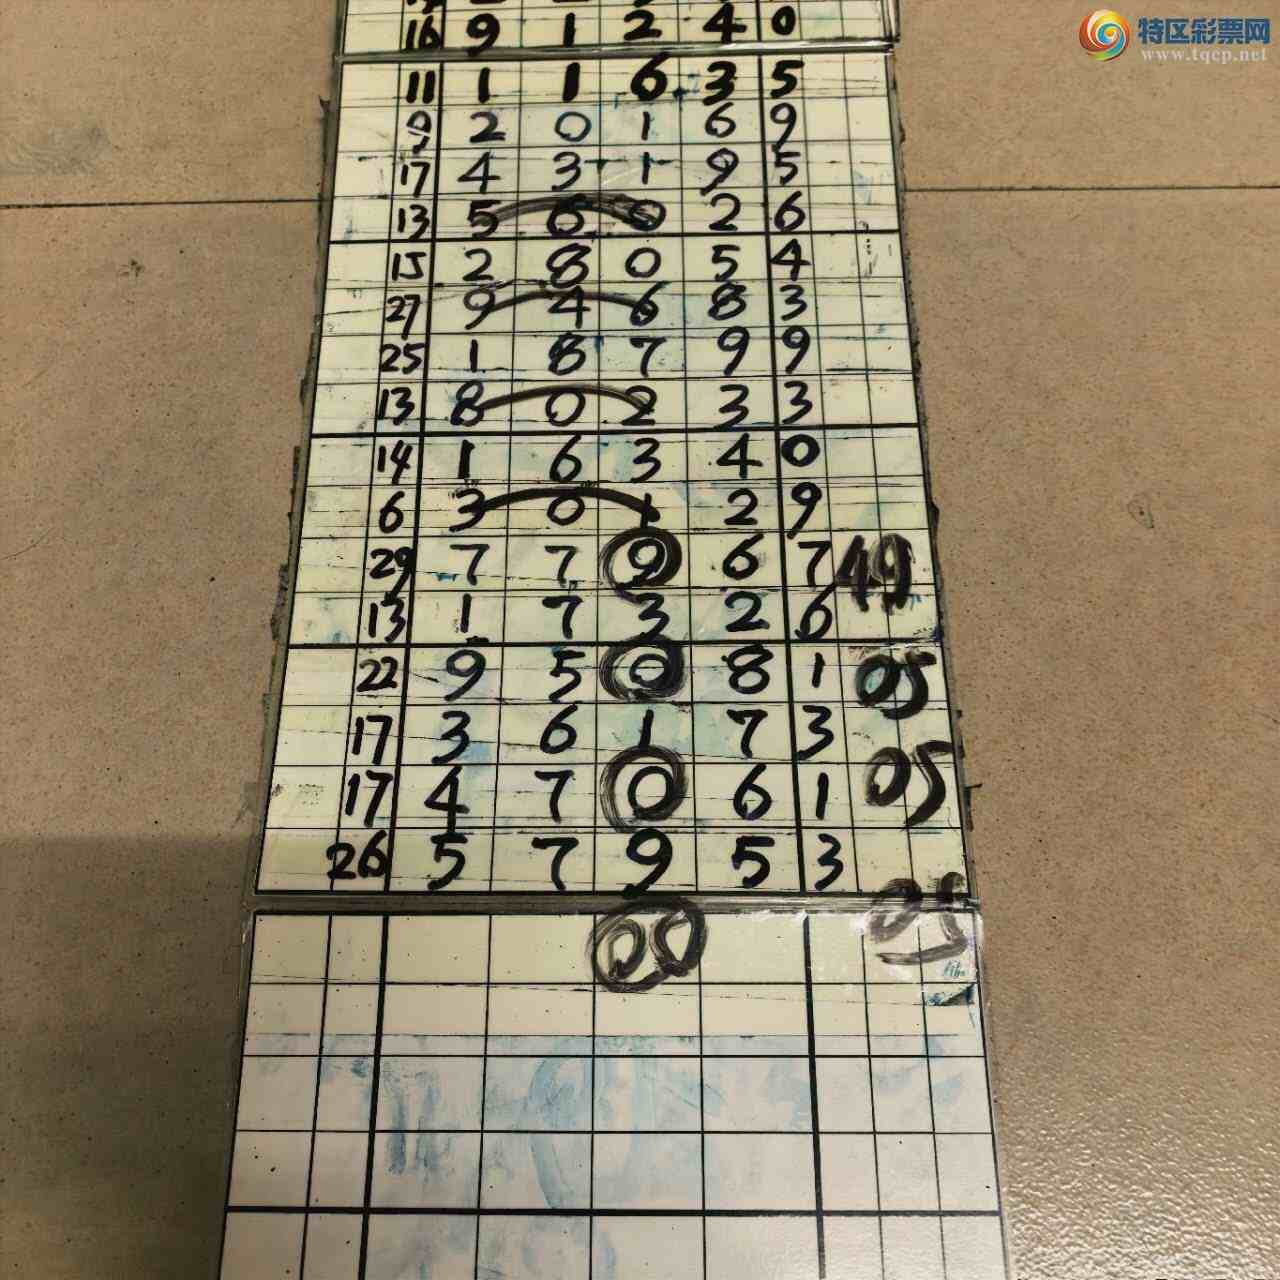 特区彩票网
www.tqcp.net
16 9 1 2 4 0
11 1 1 6 3 5
9 2 0 1 6 9
17 4 3 1 9 5
13 5 6 0 2 6
15 2 8 0 5 4
27 9 4 6 8 3
25 1 8 7 9 9
13 8 0 2 3 3
14 1 6 3 4 0
6 3 0 1 2 9
29 7 7 9 6 7 49
13 1 7 3 2 6
22 9 5 0 8 1 05
17 3 6 1 7 3
17 4 7 0 6 1 05
26 5 7 9 5 3
05
00